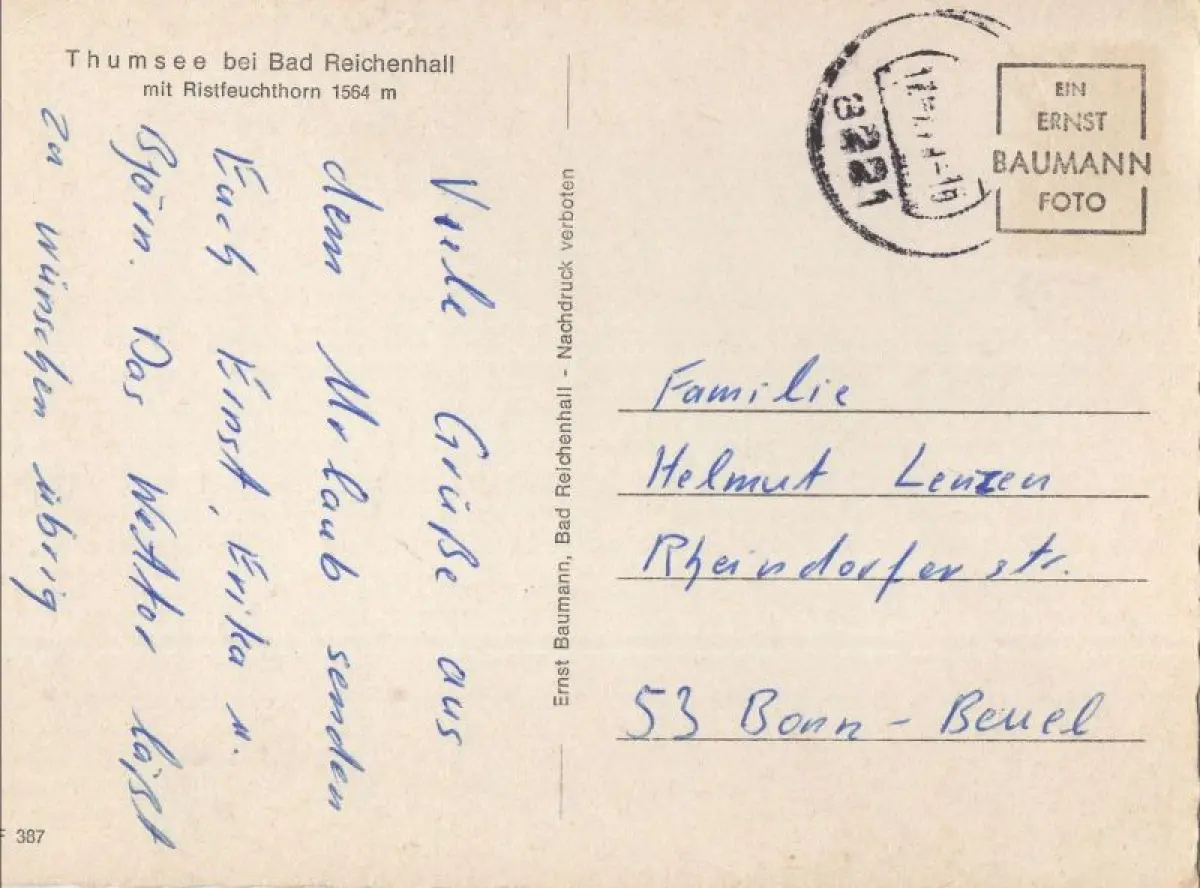 Thumsee bei Bad Reichenhall
mit Ristfeuchthorn 1564 m
Viele Grüße aus
dem Urlaub senden
Euch Ernst, Erika u.
Björn. Das Wetter läßt
zu wünschen übrig
F 387
Ernst Baumann, Bad Reichenhall - Nachdruck verboten
8221
EIN
ERNST
BAUMANN
FOTO
Familie
Helmut Lenzen
Rheindorfer str.
53 Bonn - Beuel